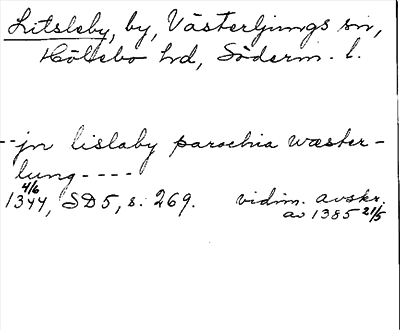 Litsleby, by, Västerljungs sn,
Hölebo hd, Söderm. l.
--jn lislaby parochia wæster-
lung----
4/6
1344, SD5, s. 269. vidim. avskr.
av 1385 21/5